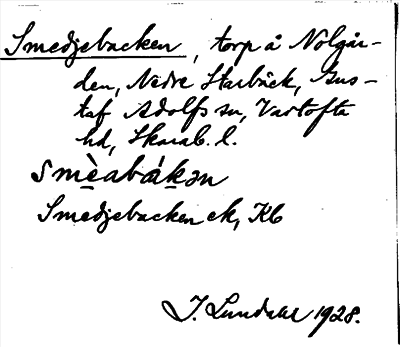 Smedjebacken, torp å Nolgår-
den, Nedre Starbäck, Gus-
taf Adolfs sn, Vartofta
hd, Skarab. l.
smèabákən
Smedjebacken ek, Kb
J. Lundahl 1928.